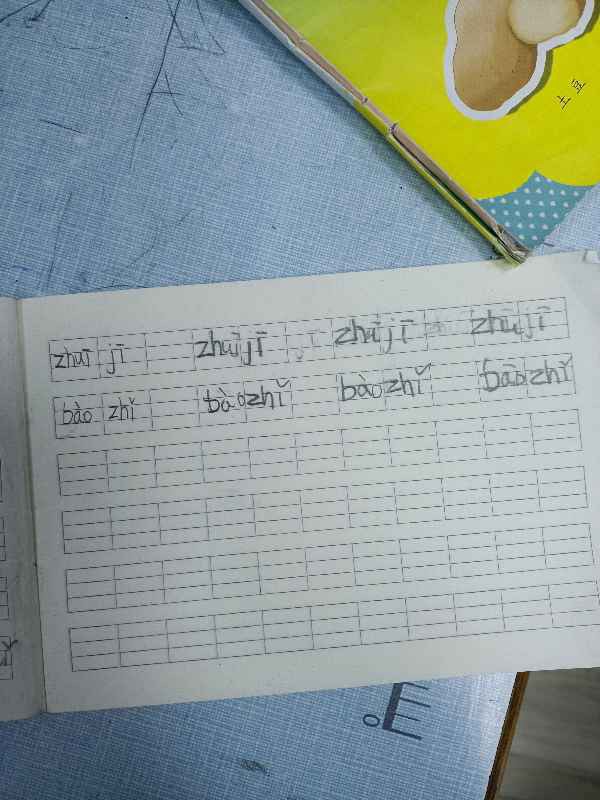 土豆
zhuī jī zhuī jī zhuī jī zhuī jī
bào zhǐ bào zhǐ bào zhǐ bāo zhǐ